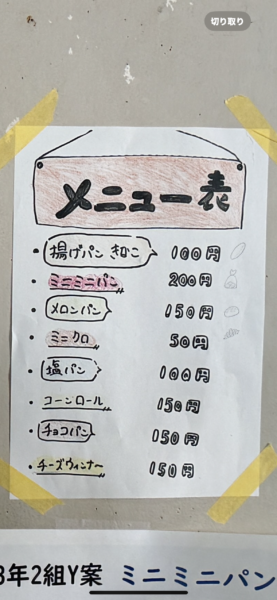 切り取り
メニュー表
・揚げパン きなこ 100円
・ミニミニパン 200円
・メロンパン 150円
・ミニクロ 50円
・塩パン 100円
・コーンロール 150円
・チョコパン 150円
・チーズウィンナー 150円
3年2組Y案 ミニミニパン